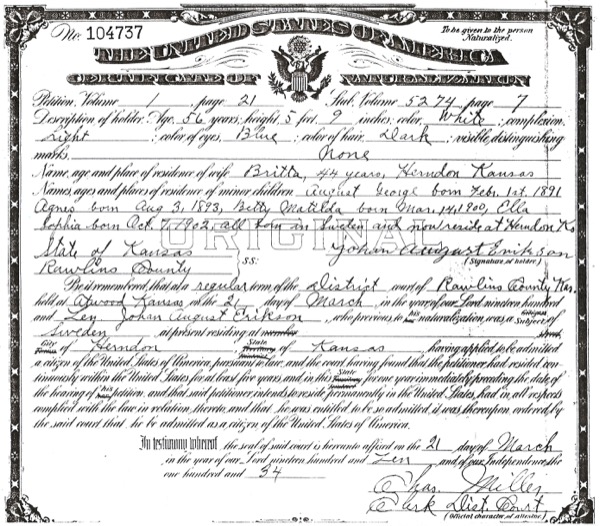 No. 104737
To be given to the person Naturalized.
THE UNITED STATES OF AMERICA
CERTIFICATE OF NATURALIZATION
Petition, Volume 1 page 21 Stub, Volume 5274 page 7
Description of holder: Age, 56 years; height, 5 feet 9 inches; color, White; complexion,
Light; color of eyes, Blue; color of hair, Dark; visible distinguishing
marks, None
Name, age and place of residence of wife Britta, 44 years, Herndon Kansas
Names, ages and places of residence of minor children August George born Febr. 1st. 1891
Agnes born Aug 3, 1893, Betty Matilda born Mar. 14, 1900, Ella
Sophia born Oct. 7, 1902, all born in Sweden and now reside at Herndon Ks
ORIGINAL
State of Kansas
Rawlins County SS:
Johan August Erikson
(Signature of holder)
Be it remembered that at a regular term of the District court of Rawlins County Kas.
held at Atwood Kansas on the 21 day of March in the year of our Lord nineteen hundred
and Ten, Johan August Erikson who previous to his naturalization, was a Subject of
Sweden at present residing at number street
City of Herndon, State of Kansas having applied to be admitted
a citizen of the United States of America, pursuant to law, and the court having found that the petitioner had resided con-
tinuously within the United States for at least five years, and in this State for one year immediately preceding the date of
the hearing of his petition, and that said petitioner intends to reside permanently in the United States, had in all respects
complied with the law in relation thereto, and that he was entitled to be so admitted, it was thereupon ordered by
the said court that he be admitted as a citizen of the United States of America.
In testimony whereof the seal of said court is hereunto affixed on the 21 day of March
in the year of our Lord nineteen hundred and Ten and of our Independence the
one hundred and 34
Chas. Miller
Clerk Dist. Court
(Official character of attestor.)